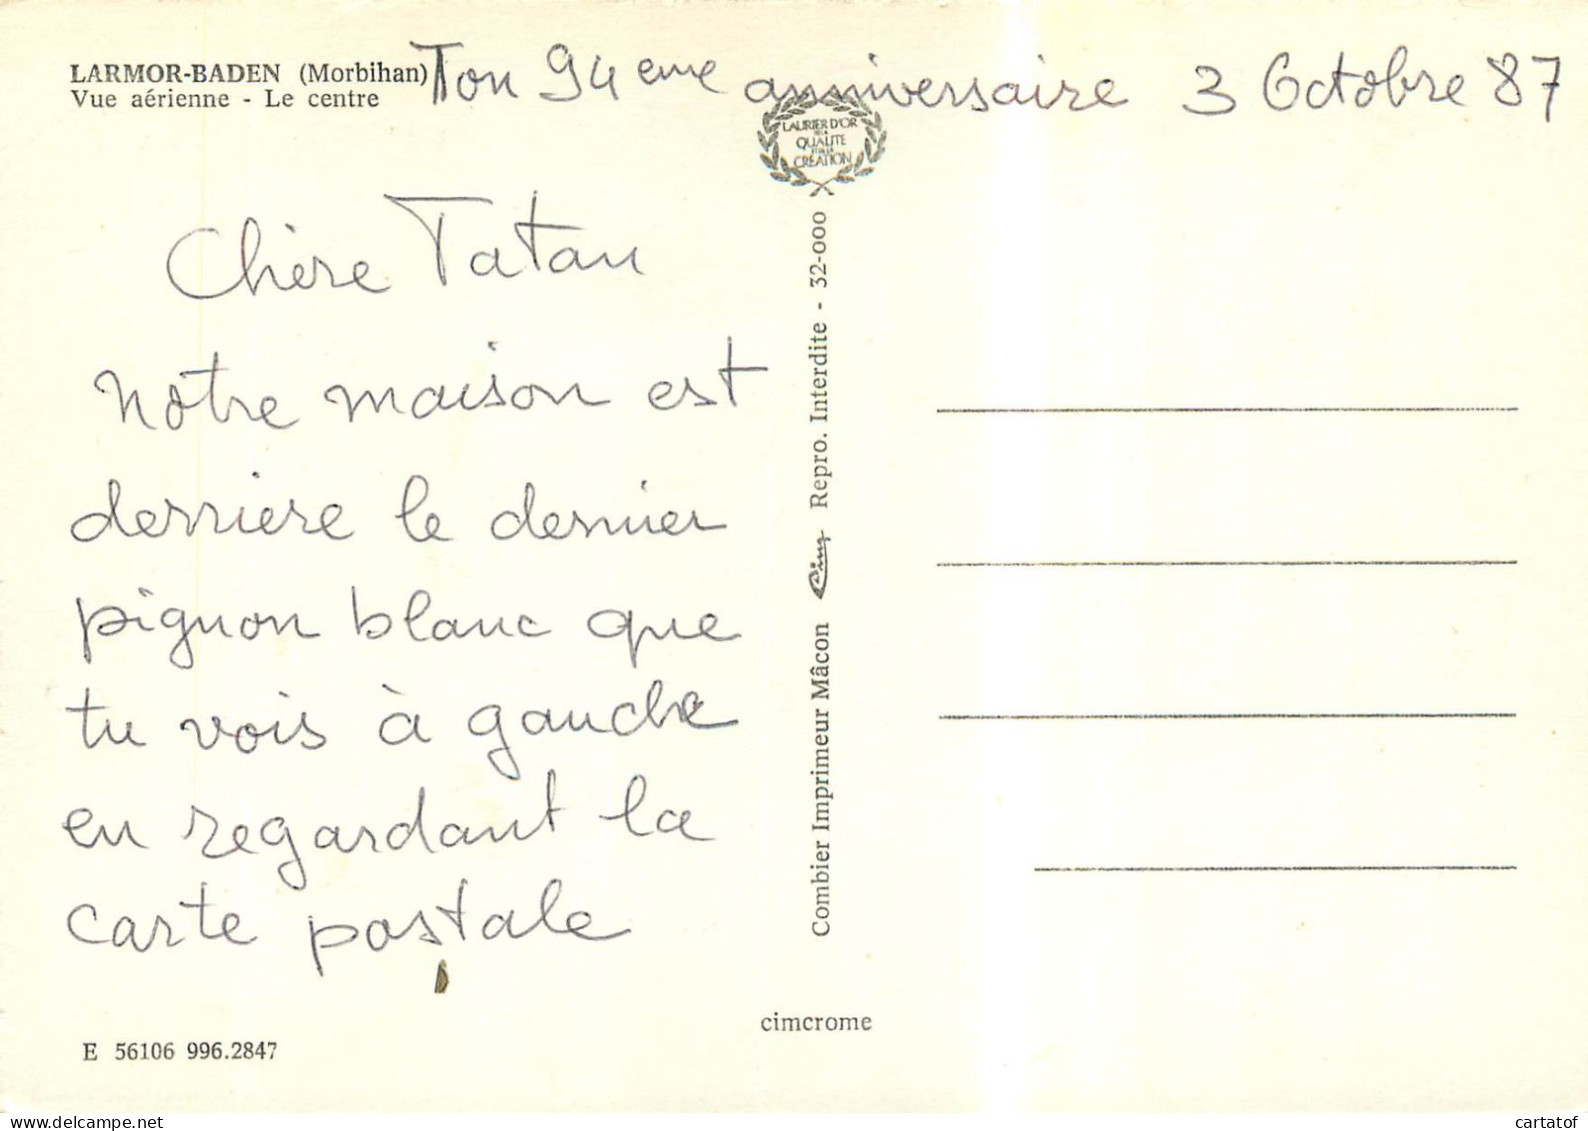 LARMOR-BADEN (Morbihan)
Vue aérienne - Le centre
Ton 94eme anniversaire 3 Octobre 87
LAURIER D'OR
DE LA
QUALITE
ET DE LA
CRÉATION
Chère Tatan
notre maison est
derriere le dernier
pignon blanc que
tu vois à gauche
en regardant la
carte postale
Combier Imprimeur Mâcon Cim Repro. Interdite - 32-000
cimcrome
E 56106 996.2847
www.delcampe.net
cartatof